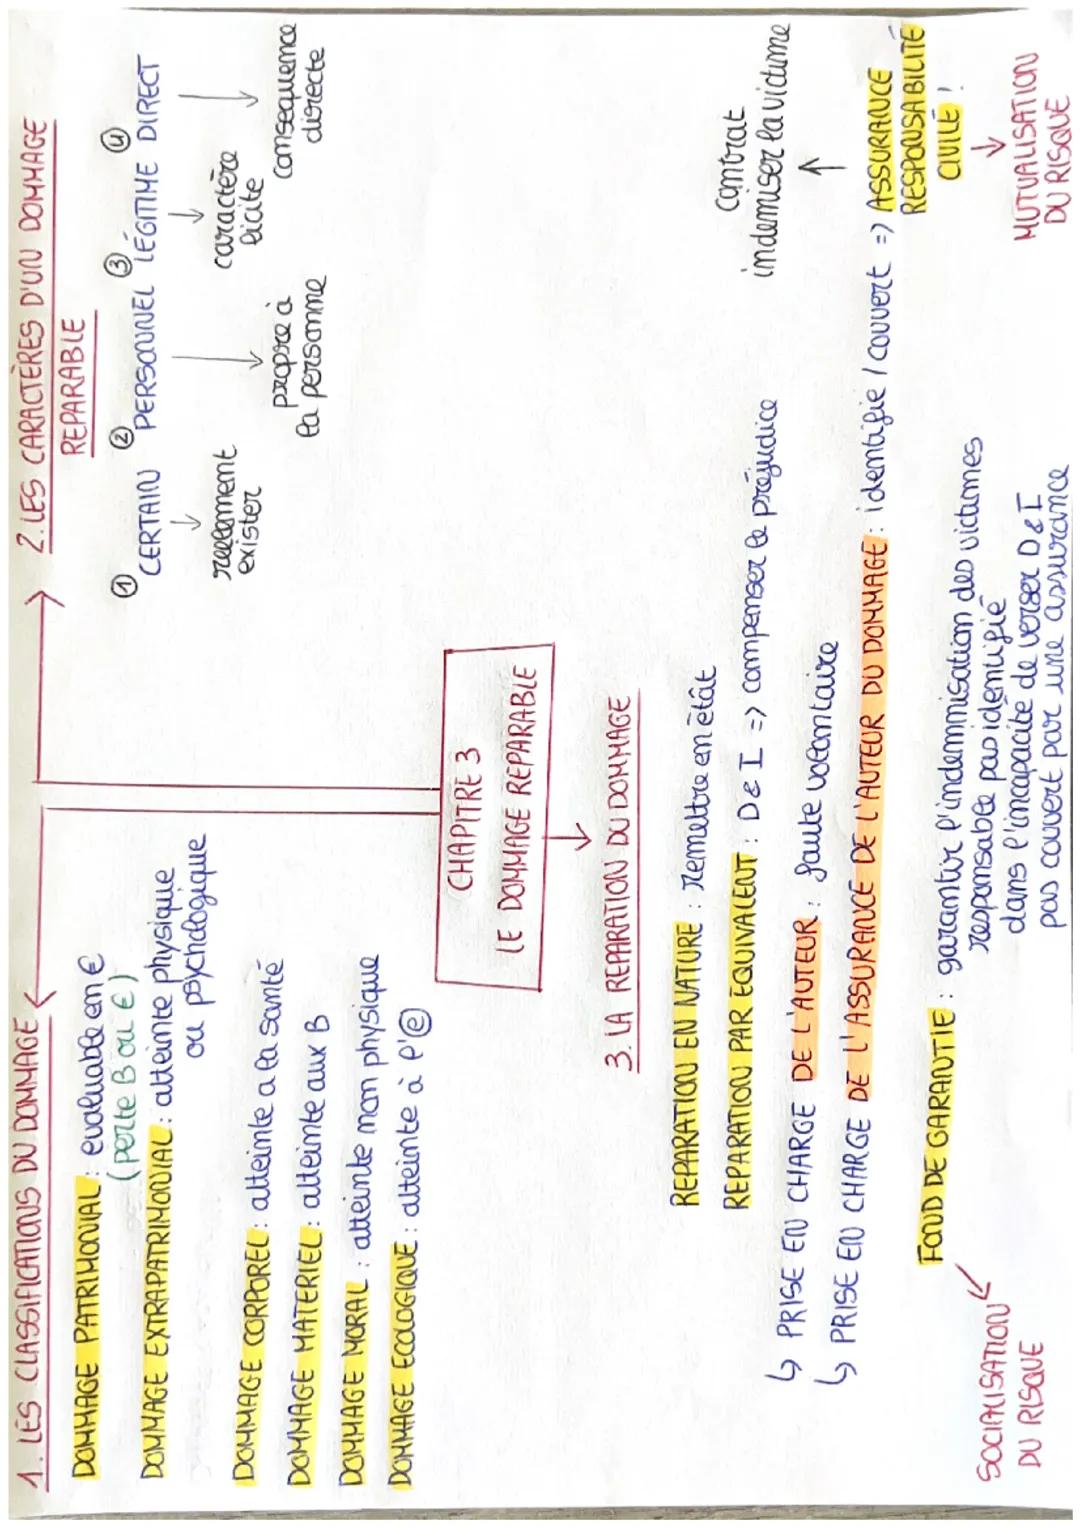 1. LES CLASSIFICATIONS DU DOMMAGE
DOMMAGE PATRIMONIAL : évaluable en €
(perte B ou €)
DOMMAGE EXTRAPATRIMONIAL : atteinte physique
ou psychologique
DOMMAGE CORPOREL : atteinte a la santé
DOMMAGE MATERIEL : atteinte aux B
DOMMAGE MORAL : atteinte non physique
DOMMAGE ECOLOGIQUE : atteinte à l'ⓔ
2. LES CARACTÈRES D'UN DOMMAGE
REPARABLE
① ② ③ ④
CERTAIN PERSONNEL LÉGITIME DIRECT
↓ ↓ ↓ ↓
reellement
exister
propre à
la personne
caractère
licite
consequence
directe
CHAPITRE 3
LE DOMMAGE REPARABLE
3. LA REPARATION DU DOMMAGE
REPARATION EN NATURE : Remettre en état
REPARATION PAR EQUIVALENT : D & I => compenser le préjudice
↳ PRISE EN CHARGE DE L'AUTEUR : faute volontaire
contrat
indemiser la victime
↑
↳ PRISE EN CHARGE DE L'ASSURANCE DE L'AUTEUR DU DOMMAGE : identifie / couvert => ASSURANCE
RESPONSABILITÉ
CIVILE !
↓
MUTUALISATION
DU RISQUE
FOND DE GARANTIE : garantir l'indemnisation des victimes
responsable pas identifié
dans l'incapacité de verser D & I
pas couvert par une assurance
SOCIALISATION
DU RISQUE